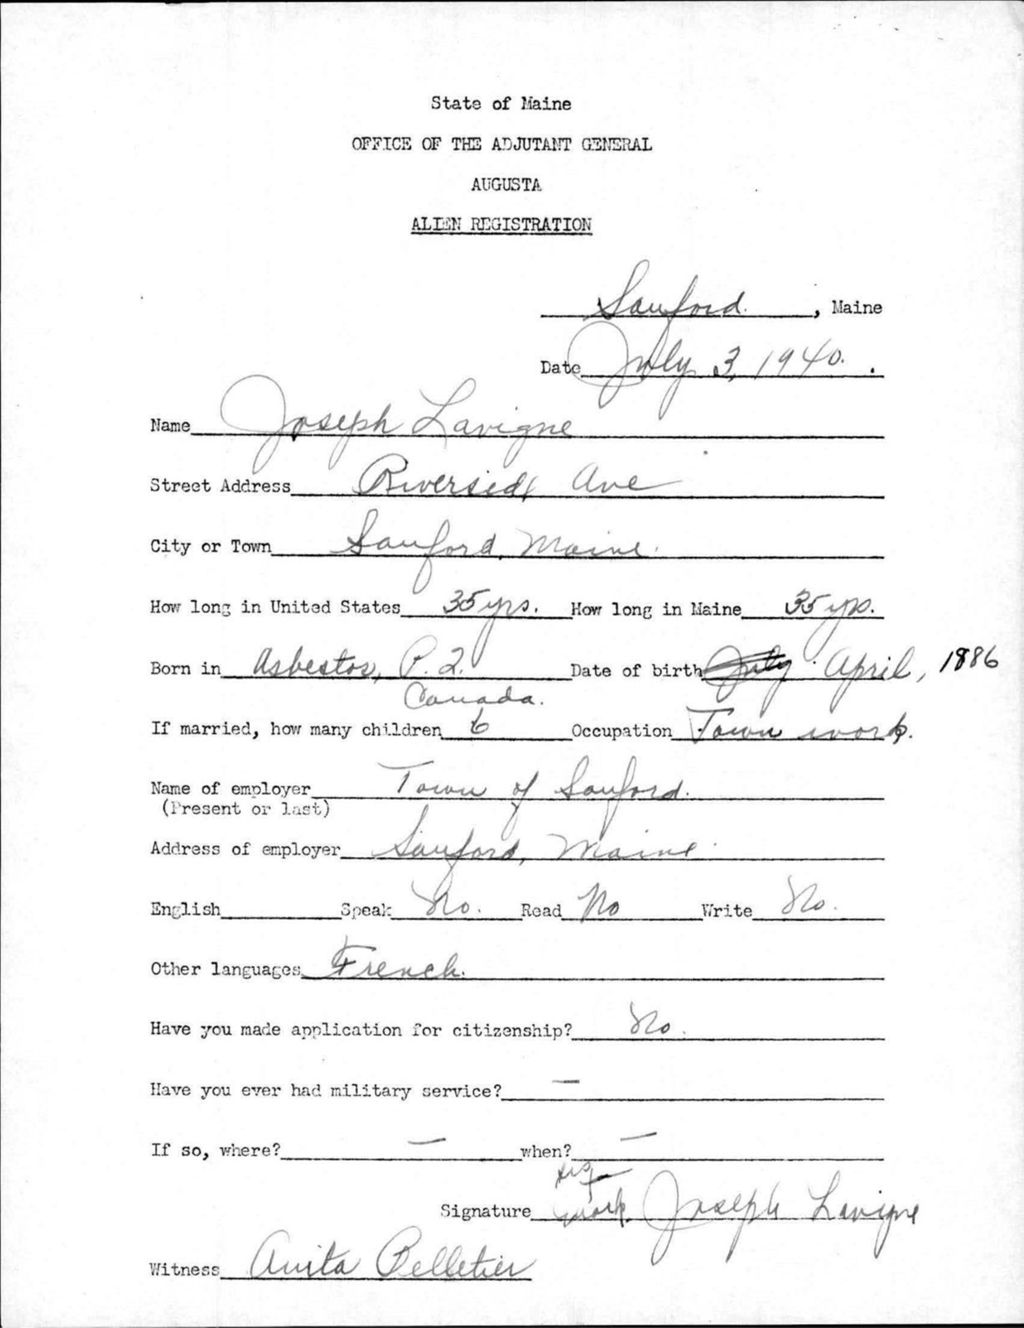 State of Maine
OFFICE OF THE ADJUTANT GENERAL
AUGUSTA
ALIEN REGISTRATION
Sanford, Maine
Date July 3, 1940.
Name Joseph Lavigne
Street Address Riverside Ave
City or Town Sanford, Maine.
How long in United States 35 yrs. How long in Maine 35 yrs.
Born in Asbestos, P.Q. Date of birth July April, 1886
Canada.
If married, how many children 6 Occupation Town work.
Name of employer Town of Sanford.
(Present or last)
Address of employer Sanford, Maine.
English Speak No. Read No Write No.
Other languages French.
Have you made application for citizenship? No.
Have you ever had military service? —
If so, where? — when? —
his
Signature mark Joseph Lavigne
Witness Anita Pelletier